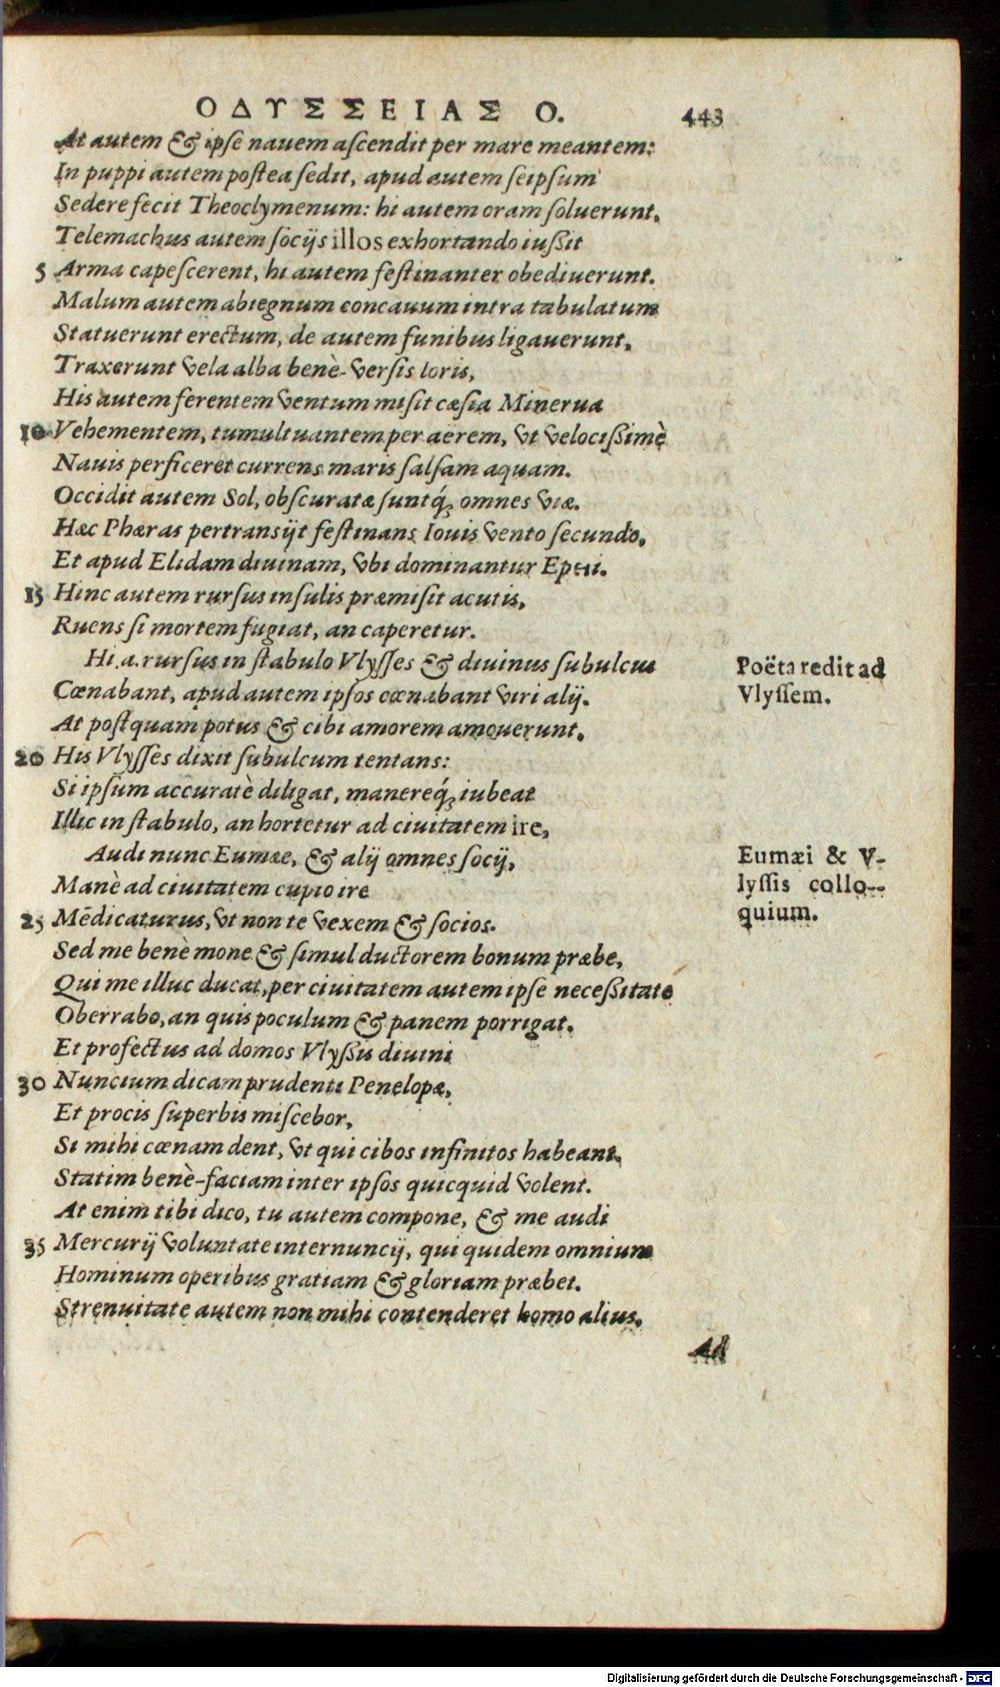 ΟΔΥΣΣΕΙΑΣ Ο. 443
At autem & ipſe nauem aſcendit per mare meantem:
In puppi autem poſtea ſedit, apud autem ſeipſum
Sedere fecit Theoclymenum: hi autem oram ſoluerunt,
Telemachus autem ſocijs illos exhortando iußit
5 Arma capeſcerent, hi autem feſtinanter obediuerunt.
Malum autem abiegnum concauum intra tabulatum
Statuerunt erectum, de autem funibus ligauerunt,
Traxerunt vela alba benè-verſis loris,
His autem ferentem ventum miſit cæſia Minerua
10 Vehementem, tumultuantem per aerem, vt velocißimè
Nauis perficeret currens maris ſalſam aquam.
Occidit autem Sol, obſcuratæ ſuntq́; omnes viæ.
Hæc Phæras pertransijt feſtinans Iouis vento ſecundo,
Et apud Elidam diuinam, vbi dominantur Epei.
15 Hinc autem rurſus inſulis præmiſit acutis,
Ruens ſi mortem fugiat, an caperetur.
Hi .a. rurſus in ſtabulo Vlyſſes & diuinus ſubulcus
Cœnabant, apud autem ipſos cœnabant viri alij.
At poſtquam potus & cibi amorem amouerunt,
20 His Vlyſſes dixit ſubulcum tentans:
Si ipſum accuratè diligat, manereq́; iubeat
Illic in ſtabulo, an hortetur ad ciuitatem ire,
Audi nunc Eumæe, & alij omnes ſocij,
Manè ad ciuitatem cupio ire
25 Mēdicaturus, vt non te vexem & ſocios.
Sed me benè mone & ſimul ductorem bonum præbe,
Qui me illuc ducat, per ciuitatem autem ipſe neceßitate
Oberrabo, an quis poculum & panem porrigat.
Et profectus ad domos Vlyßis diuini
30 Nuncium dicam prudenti Penelopæ,
Et procis ſuperbis miſcebor,
Si mihi cœnam dent, vt qui cibos infinitos habeant,
Statim benè-faciam inter ipſos quicquid volent.
At enim tibi dico, tu autem compone, & me audi
35 Mercurij voluntate internuncij, qui quidem omnium
Hominum operibus gratiam & gloriam præbet.
Strenuitate autem non mihi contenderet homo alius,
Ad
Poëta redit ad
Vlyſſem.
Eumæi & V-
lyſſis collo-
quium.
Digitalisierung gefördert durch die Deutsche Forschungsgemeinschaft - DFG